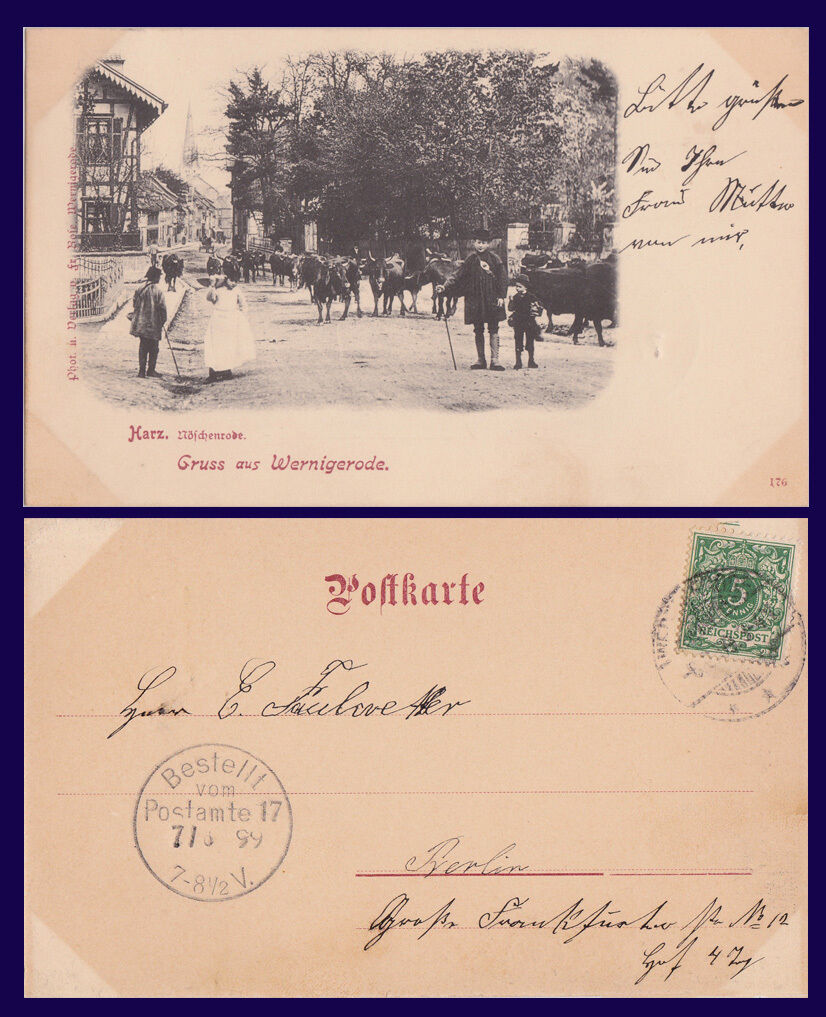 Bitte grüßen
Sie Ihre
Frau Mutter
von mir,
Phot. u. Verlag v. Fr. Rose, Wernigerode
Harz. Nöschenrode.
Gruss aus Wernigerode.
176
Postkarte
5
PFENNIG
REICHSPOST
Herrn E. Faulwetter
Bestellt
vom
Postamte 17
7/6 99
7-8 1/2 V.
Berlin
Große Frankfurter str No 12
Hof 4 Trp